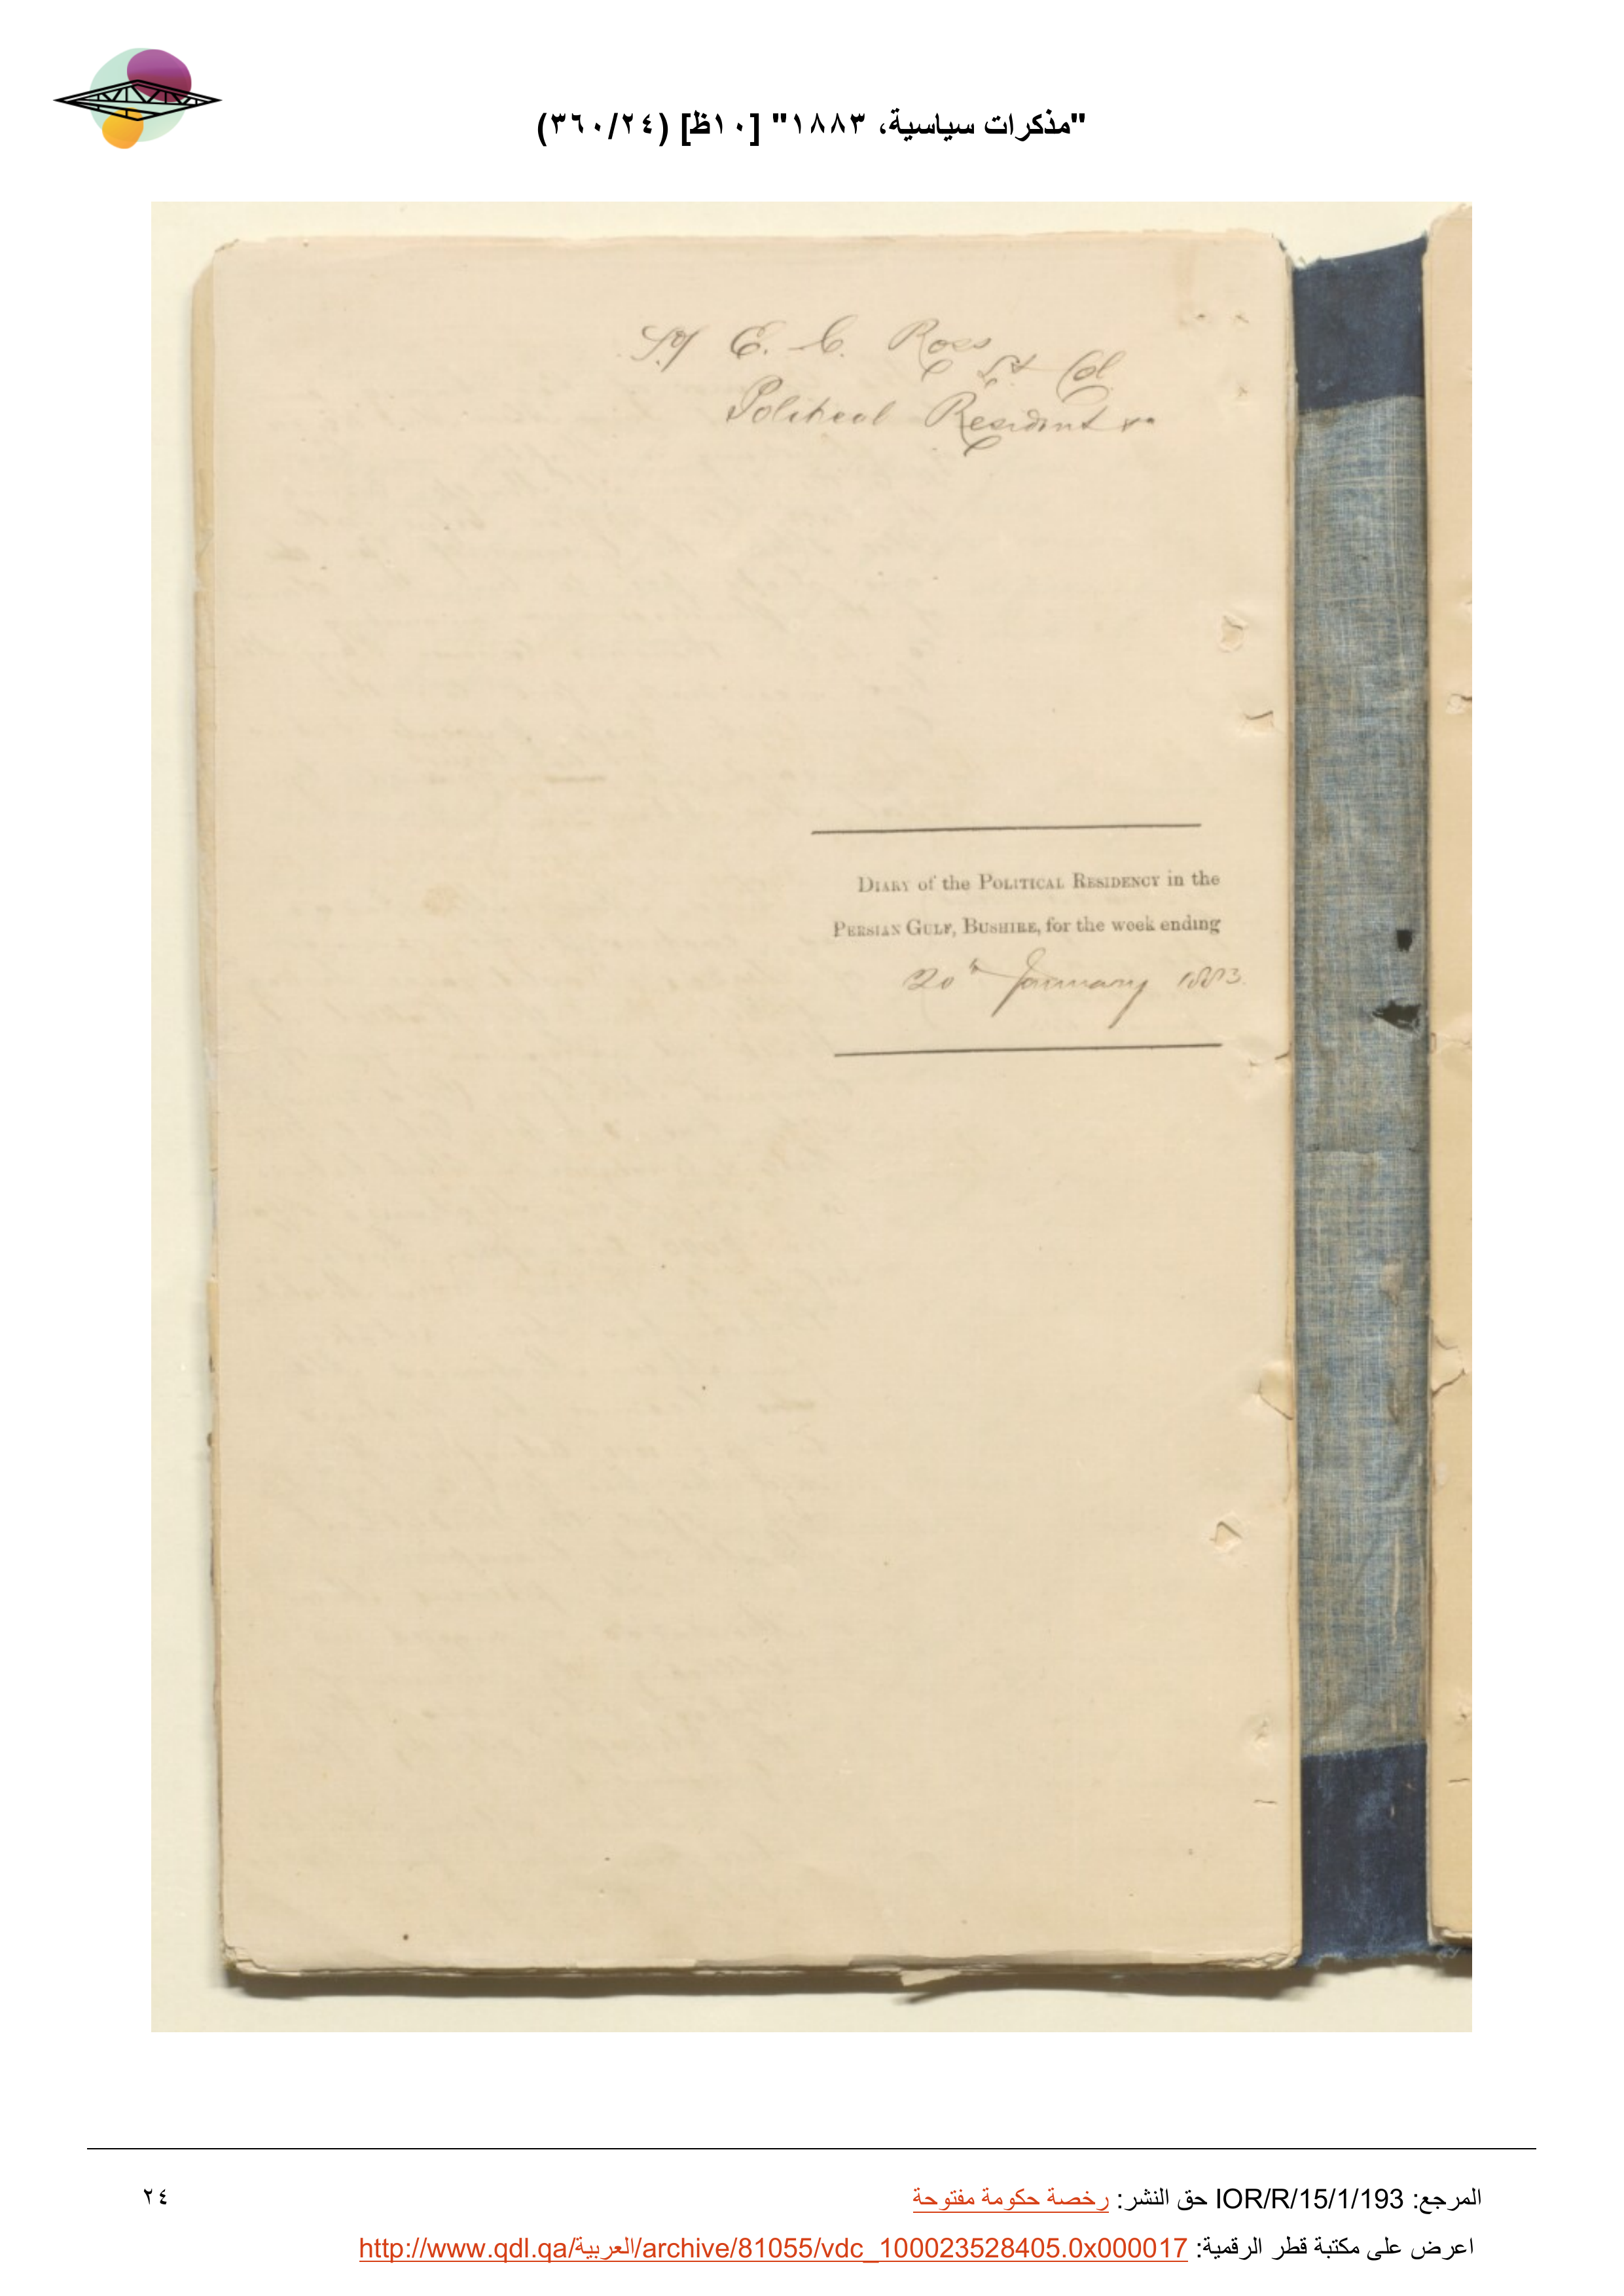 "مذكرات سياسية، ١٨٨٣" [١٠ظ] (٣٦٠/٢٤)
E. C. Ross
Lt Col
Political Resident
DIARY of the POLITICAL RESIDENCY in the
PERSIAN GULF, BUSHIRE, for the week ending
20th January 1883.
المرجع: IOR/R/15/1/193 حق النشر: رخصة حكومة مفتوحة
٢٤
اعرض على مكتبة قطر الرقمية: http://www.qdl.qa/العربية/archive/81055/vdc_100023528405.0x000017